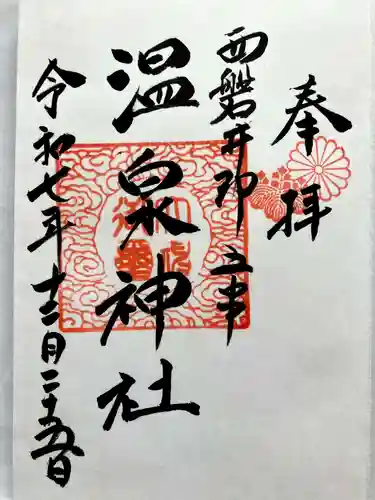 奉拝
西磐井郡五串
温泉神社
令和七年十二月二十五日